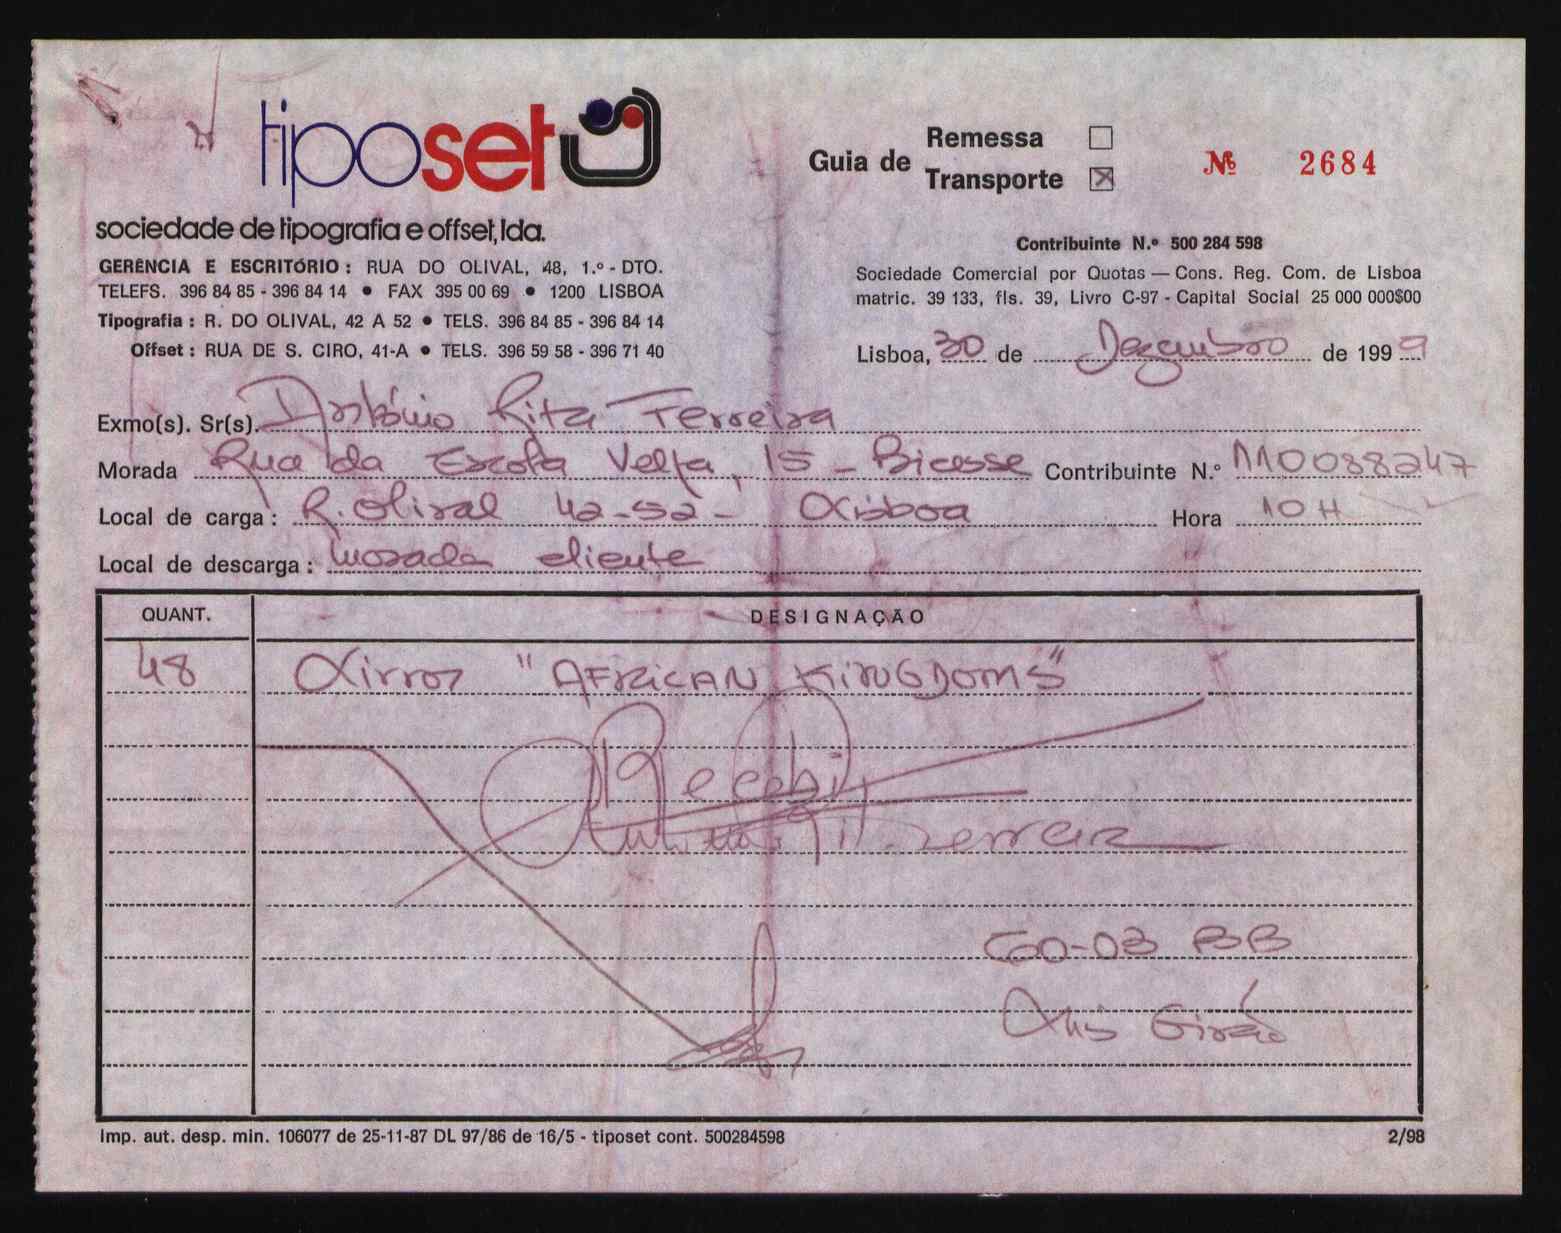 tiposet
Guia de
Remessa
Transporte
№ 2684
sociedade de tipografia e offset, lda.
GERÊNCIA E ESCRITÓRIO : RUA DO OLIVAL, 48, 1.º - DTO.
TELEFS. 396 84 85 - 396 84 14 ● FAX 395 00 69 ● 1200 LISBOA
Tipografia : R. DO OLIVAL, 42 A 52 ● TELS. 396 84 85 - 396 84 14
Offset : RUA DE S. CIRO, 41-A ● TELS. 396 59 58 - 396 71 40
Contribuinte N.º 500 284 598
Sociedade Comercial por Quotas — Cons. Reg. Com. de Lisboa
matric. 39 133, fls. 39, Livro C-97 - Capital Social 25 000 000$00
Lisboa, 30 de Dezembro de 1999
Exmo(s). Sr(s). António Rita Ferreira
Morada Rua da Escola Velha, 15 - Bicesse Contribuinte N.º 110088247
Local de carga : R. Olival 42-52 - Lisboa Hora 10 H
Local de descarga : morada cliente
QUANT. DESIGNAÇÃO
48 Livros "AFRICAN KINGDOMS"
Recebi
António Rita Ferreira
60-03 BB
Luis Girão
Imp. aut. desp. min. 106077 de 25-11-87 DL 97/86 de 16/5 - tiposet cont. 500284598 2/98